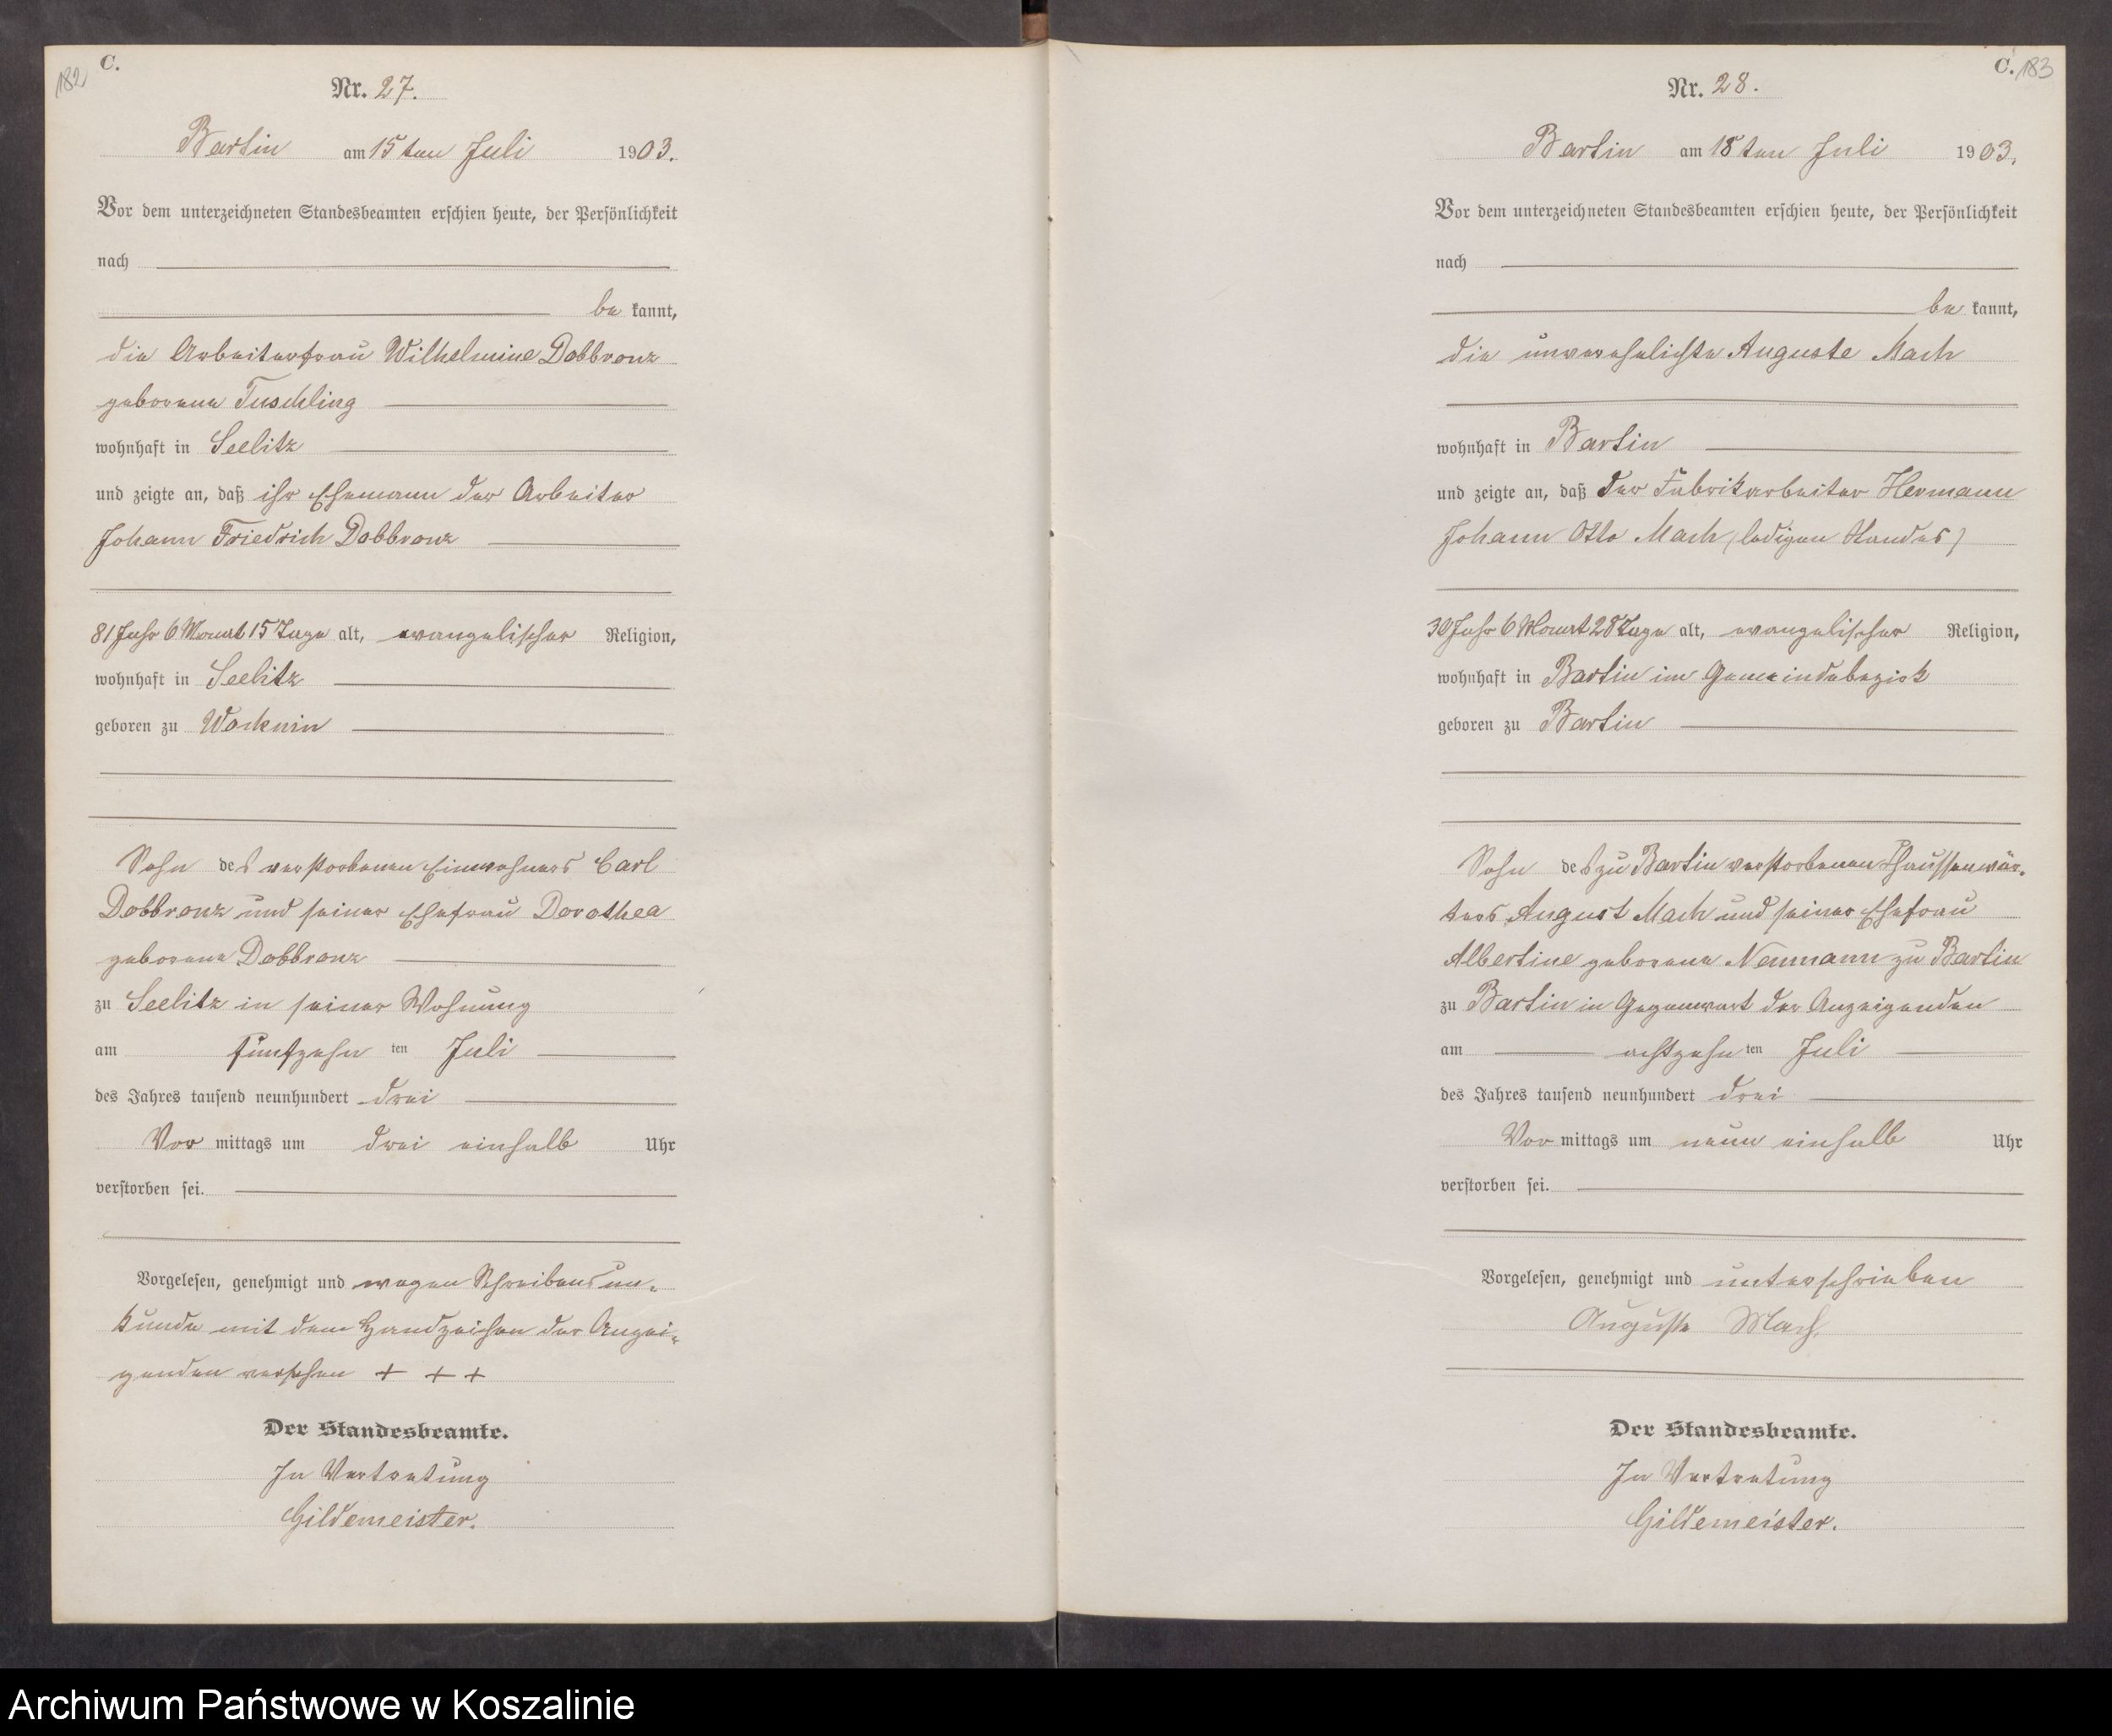 182
C.
Nr. 27.
Bartin am 15 ten Juli 1903.
Vor dem unterzeichneten Standesbeamten erschien heute, der Persönlichkeit
nach
be kannt,
die Arbeiterfrau Wilhelmine Dobbronz
geborene Tuschling
wohnhaft in Seelitz
und zeigte an, daß ihr Ehemann der Arbeiter
Johann Friedrich Dobbronz
81 Jahr 6 Monat 15 Tage alt, evangelischer Religion,
wohnhaft in Seelitz
geboren zu Wocknin
Sohn des verstorbenen Einwohners Carl
Dobbronz und seiner Ehefrau Dorothea
geborene Dobbronz
zu Seelitz in seiner Wohnung
am fünfzehn ten Juli
des Jahres tausend neunhundert drei
Vor mittags um drei einhalb Uhr
verstorben sei.
Vorgelesen, genehmigt und wegen Schreibensun-
kunde mit dem Handzeichen der Anzei-
genden versehen + + +
Der Standesbeamte.
In Vertretung
Gildemeister.
C. 183
Nr. 28.
Bartin am 18 ten Juli 1903.
Vor dem unterzeichneten Standesbeamten erschien heute, der Persönlichkeit
nach
be kannt,
die unverehelichte Auguste Mach
wohnhaft in Bartin
und zeigte an, daß der Fabrikarbeiter Hermann
Johann Otto Mach (ledigen Standes)
30 Jahr 6 Monat 28 Tage alt, evangelischer Religion,
wohnhaft in Bartin im Gemeindebezirk
geboren zu Bartin
Sohn des zu Bartin verstorbenen Chaussenwär-
ters August Mach und seiner Ehefrau
Albertine geborene Neumann zu Bartin
zu Bartin in Gegenwart der Anzeigenden
am achtzehn ten Juli
des Jahres tausend neunhundert drei
Vor mittags um neun einhalb Uhr
verstorben sei.
Vorgelesen, genehmigt und unterschrieben
Auguste Mach
Der Standesbeamte.
In Vertretung
Gildemeister.
Archiwum Państwowe w Koszalinie